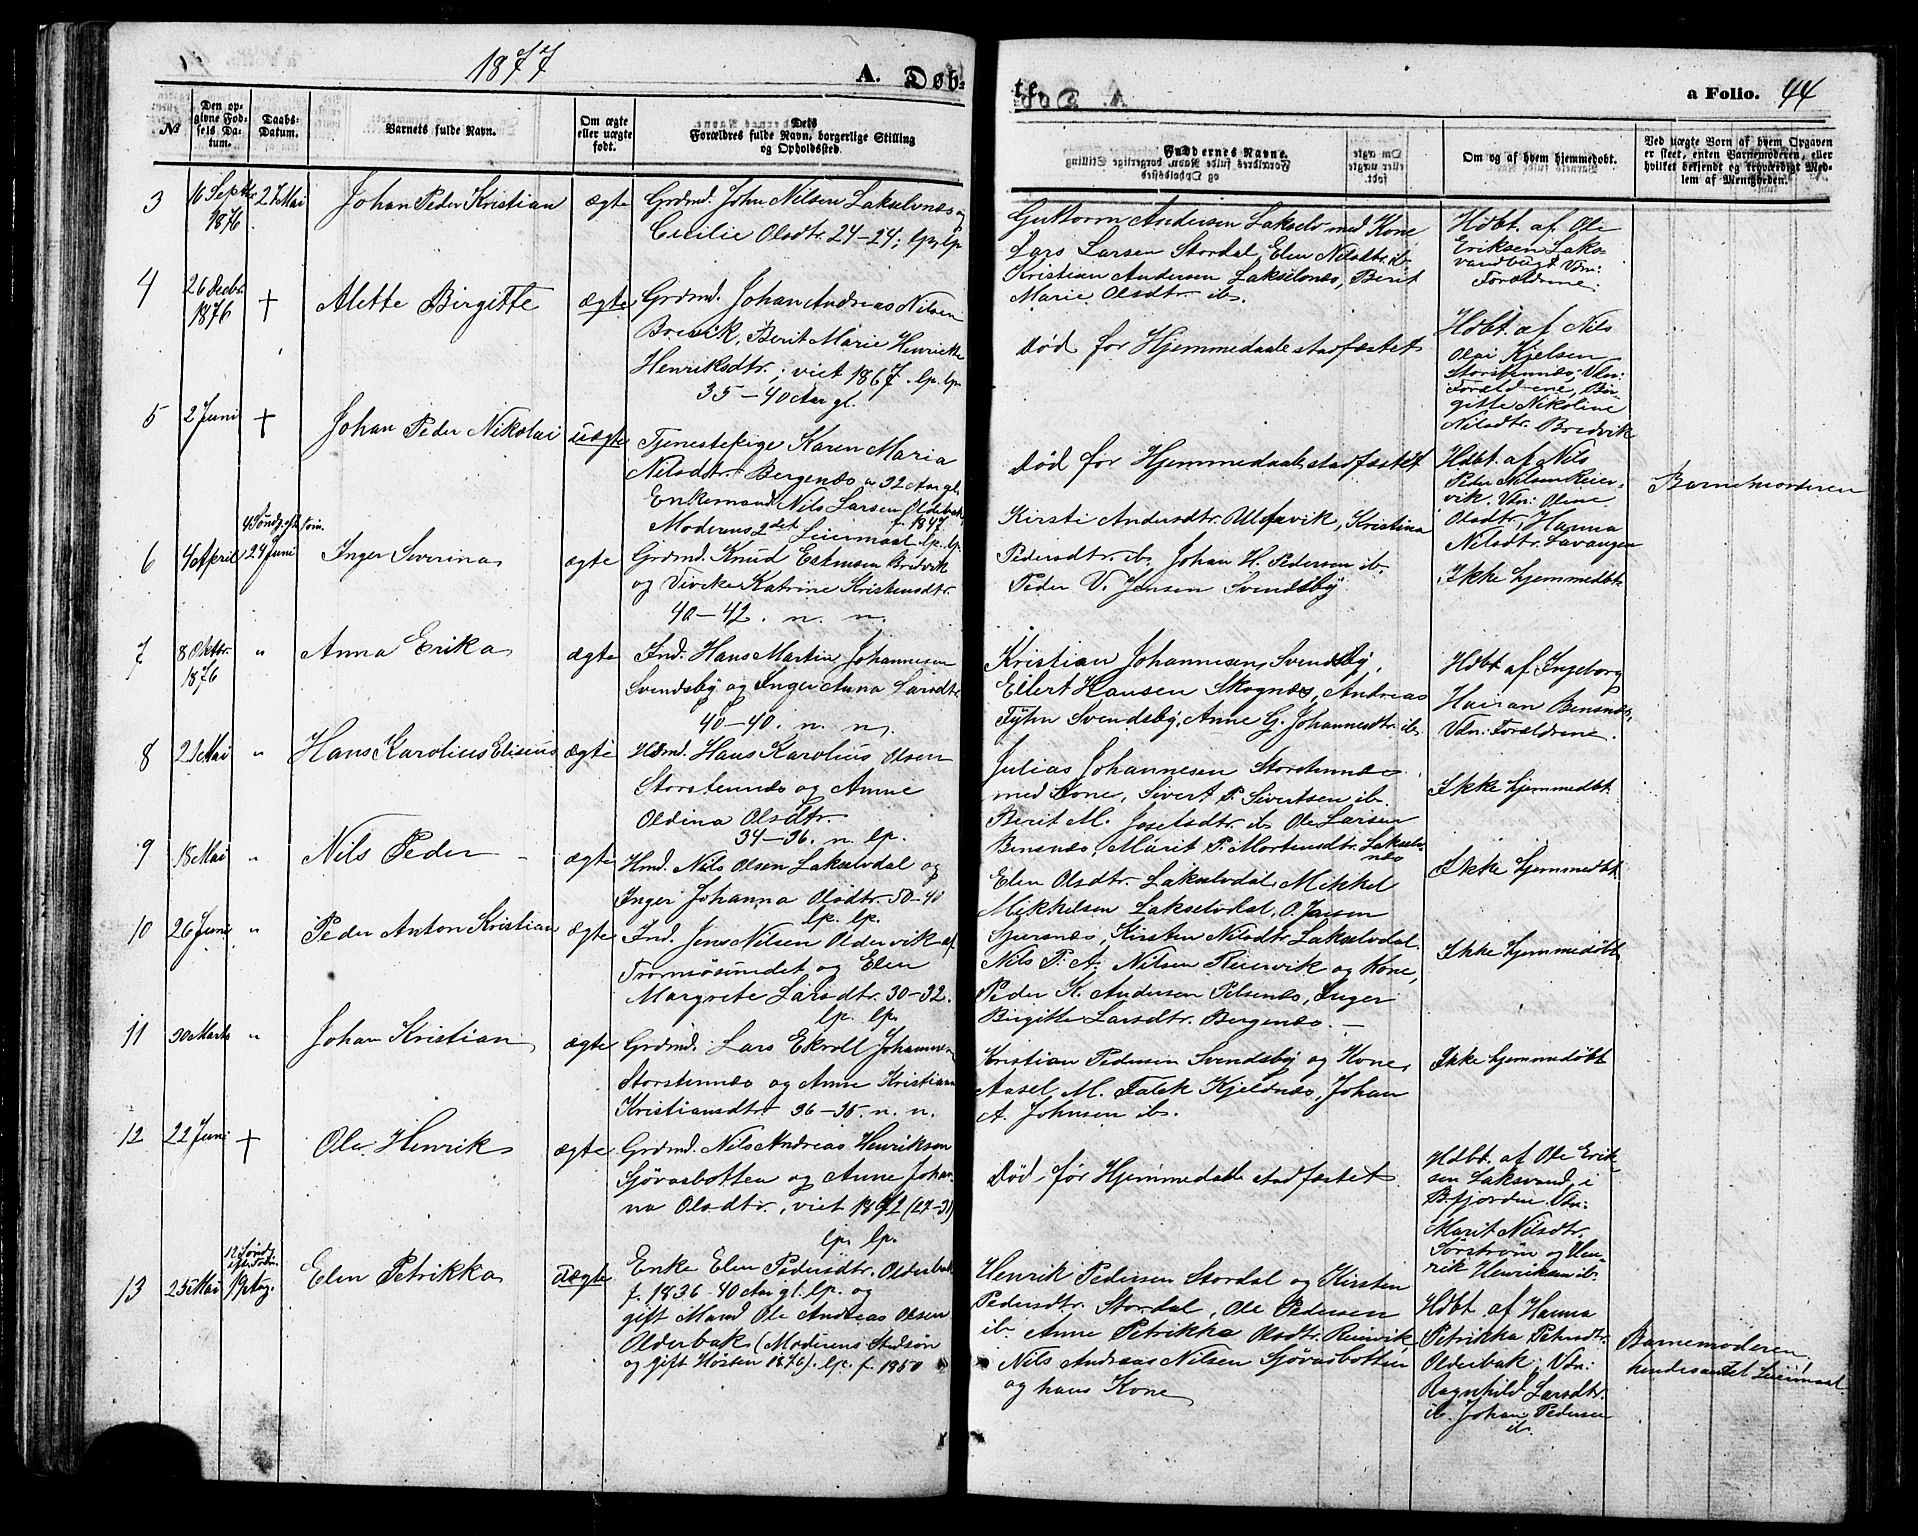 1877
A. Døb-
te.
a Folio. 44
№
Den op-
givne Fød-
sels Da-
tum.
Daabs-
Datum.
Barnets fulde Navn.
Om ægte
eller uægte
født.
Dets
Forældres fulde Navn, borgerlige Stilling
og Opholdssted.
Fuddernes Navne.
Om og af hvem hjemmedøbt.
Ved uægte Børn af hvem Opgaven
er skeet, enten Barnemoderen, eller
hvilket bekjendt og troværdigt Med-
lem af Menigheden.
3
16 Septbr
1876
27 Mai
Johan Peder Kristian
ægte
Grdmd. John Nilsen Lakselvnæs og
Cecilie Olsdtr. 24-24; lp. lp.
Guttorm Andersen Lakselv med Kone
Lars Larsen Stordal, Elen Nilsdtr ib.
Kristian Andersen Lakselvnæs, Berit
Marie Olsdtr ib.
Hdbt. af Ole
Eriksen Laks-
vandbugt Vdn:
Forældrene.
4
26 Decbr.
1876
+
Alette Birgitte
ægte
Grdmd. Johan Andreas Nilsen
Bredvik, Berit Marie Henrikke
Henriksdtr.; viet 1867. lp. lp.
35-40 Aar gl.
Død før Hjemmedaab stadfæstet
Hdbt. af Nils
Olai Kjelsen
Storstennæs; Vdn:
Forældrene, Bir-
gitte Nikoline
Nilsdtr. Bredvik
5
2 Juni
+
Johan Peder Nikolai
uægte
Tjenestepige Karen Maria
Nilsdtr. Bergenæs 32 Aar gl.
Enkemand Nils Larsen Olderbak
f. 1847.
Moderens 2det Leiermaal lp. lp.
Død før Hjemmedaab stadfæstet
Hdbt. af Nils
Peder Nilsen Reier-
vik. Vdn: Oline
Olsdtr, Hanna
Nilsdtr. Lavangen
Barnemoderen
6
4 April
4 Søndg. eft. Trin.
24 Juni
Inger Severina
ægte
Grdmd. Knud Espensen Bredvik
og Vivikes Katrine Kristensdtr.
40-42. n. n.
Kirsti Andersdtr. Ulfsvik, Kristina
Pedersdtr. ib. Johan H. Pedersen ib.
Peder V. Jensen Svendsby
Ikke hjemmedbt.
7
8 Oktbr.
1876
"
Anna Erika
ægte
Ind. Hans Martin Johannesen
Svendsby og Inger Anna Larsdtr
40-40. n. n.
Kristian Johannesen, Svendsby,
Eilert Hansen Skognæs, Andreas
Fyhn Svendsby, Anne G. Johannesdtr. ib.
Hdbt. af Ingeborg
Hansan Bensnæs,
Vdn: Forældrene.
8
21 Mai
"
Hans Karolius Elisæus
ægte
Hdmd. Hans Karolius Olsen
Storstennæs og Anne
Oldina Olsdtr.
34-36. n. lp.
Julias Johannesen Storstennæs
med Kone, Sivert P. Sivertsen ib.
Berit M. Josefsdtr. ib Ole Larsen
Bensnæs, Marit P. Mortensdtr. Lakselv-
næs
Ikke hjemmedbt
9
18 Mai
"
Nils Peder
ægte
Hmd. Nils Olsen Lakselvdal og
Inger Johanna Olsdtr. 50-40
lp. lp.
Elen Olsdtr. Lakselvdal, Mikkel
Mikkelsen Lakselvdal, O. Jansen
Sjursnæs, Kirsten Nilsdtr Lakselvdal.
Ikke hjemmedbt.
10
26 Juni
"
Peder Anton Kristian
ægte
Ind. Jens Nilsen Oldervik af
Tromsøsundet og Elen
Margrete Larsdtr. 30-32.
lp. lp.
Nils P. A. Nilsen Reiervik og Kone,
Peder K. Andersen Pelsenæs, Inger
Birgitte Larsdtr. Bergenæs.
Ikke hjemmedøbt
11
30 Marts
"
Johan Kristian
ægte
Grdmd. Lars Ekroll Johannesen
Storstennæs og Anne Kristiane
Kristiansdtr 36-35. n. n.
Kristian Pedersen Svendsby og Kone,
Aasel M. Falck Kjelsnæs, Johan
A. Johnsen ib.
Ikke hjemmedøbt
12
22 Juni
+
Ole Henrik
ægte
Grdmd. Nils Andreas Henriksen
Sjøvasbotten og Anne Johan-
na Olsdtr., viet 1872 (27-31)
lp. lp.
Død før Hjemmedaab stadfæstet
Hdbt. af Ole Erik-
sen Laksvand i
B.fjorden Vdn:
Marit Nilsdtr.
Sørstrøm og Hen-
rik Henriksen ib.
13
25 Mai
12 Søndg.
eft. Trin.
19 Aug.
Elen Petrikka
uægte
Enke Elen Pedersdtr. Olderbak
f. 1836 - 40 Aar gl. lp. og
gift Mand Ole Andreas Olsen
Olderbak (Moderens Stedsøn
og gift Høsten 1876). lp. f. 1850
Henrik Pedersen Stordal og Kirsten
Pedersdtr. Stordal, Ole Pedersen
ib. Anne Petrikka Olsdtr. Reiervik,
Nils Andreas Nilsen Sjøvasbotten
og hans Kone
Hdbt. af Hanna
Petrikka Pedersdtr.
Olderbak; Vdn:
Ragnhild Larsdtr.
ib. Johan Pedersen
ib.
Barnemoderen,
Leiermaal